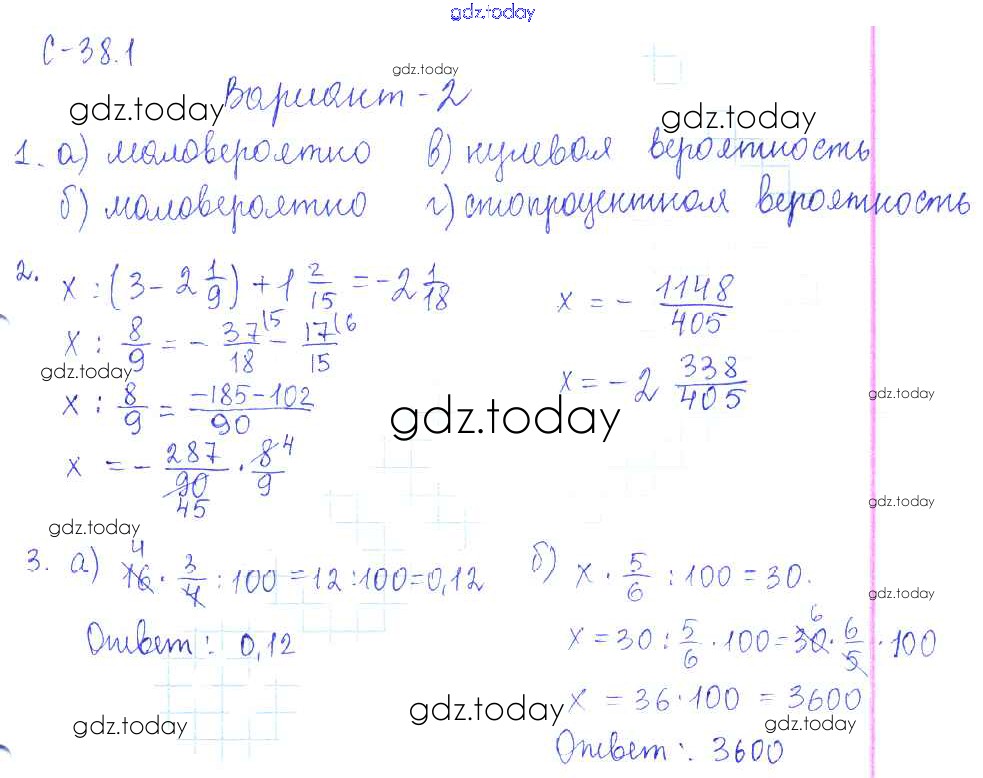 gdz.today
С-38.1
gdz.today
Вариант - 2
gdz.today gdz.today
1. а) маловероятно в) нулевая вероятность
б) маловероятно г) стопроцентная вероятность
2. x : (3 - 2 1/9) + 1 2/15 = -2 1/18
x : 8/9 = - 37/18 (5 - 17/15 (6
gdz.today
x : 8/9 = (-185-102)/90
x = - 287/90 · 8/9
45 4
x = - 1148/405
x = -2 338/405
gdz.today
gdz.today
gdz.today
gdz.today
3. а) 16 · 3/4 : 100 = 12 : 100 = 0,12
4
Ответ: 0,12
gdz.today
б) x · 5/6 : 100 = 30.
gdz.today
x = 30 : 5/6 · 100 = 30 · 6/5 · 100
6
x = 36 · 100 = 3600
gdz.today gdz.today
Ответ: 3600